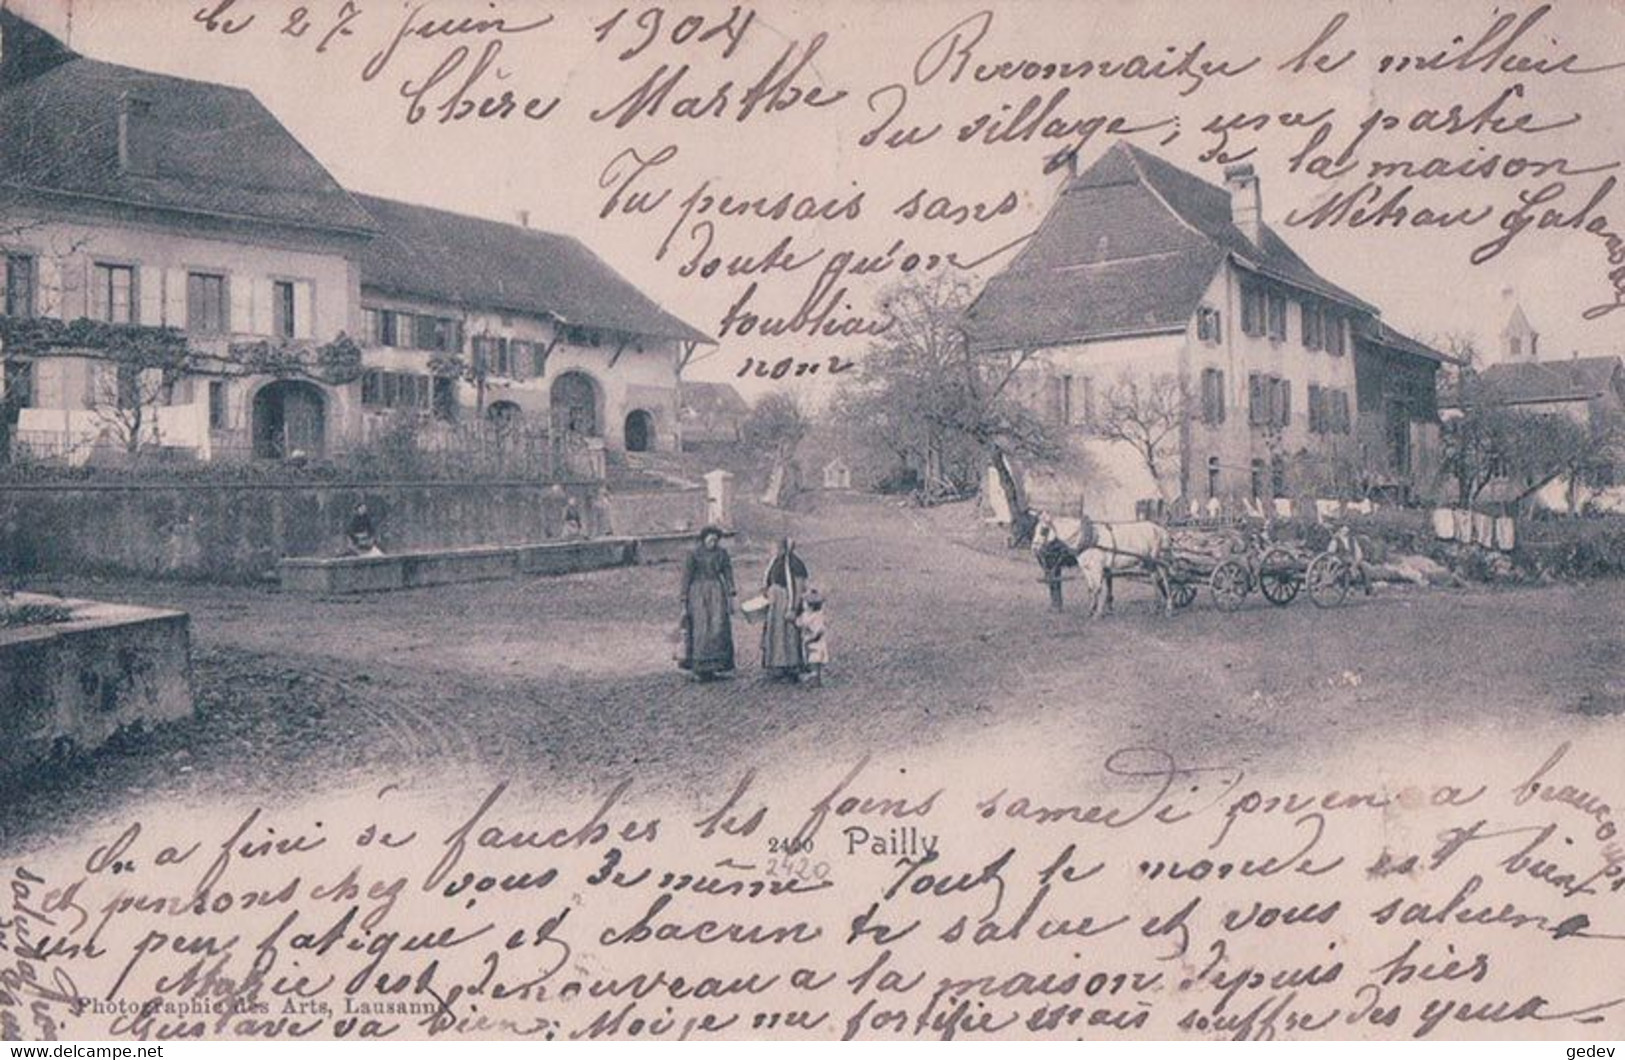 le 27 Juin 1904
Chère Marthe
Reconnaitre le millieu
du village; une partie
de la maison
Métrau
Tu pensais sans
doute qu'on
toubliai
non
On a fini de faucher les foins samedi on en a beaucoup
2420 Pailly
2420
et pensons chez vous de même Tout le monde est bien
un peu fatigué et chacun te salue et vous saluent
Marie est denouveau a la maison depuis hier
Photographie des Arts, Lausanne
Gustave va bien; Moi je me fortifie mais souffre des yeux
gedev